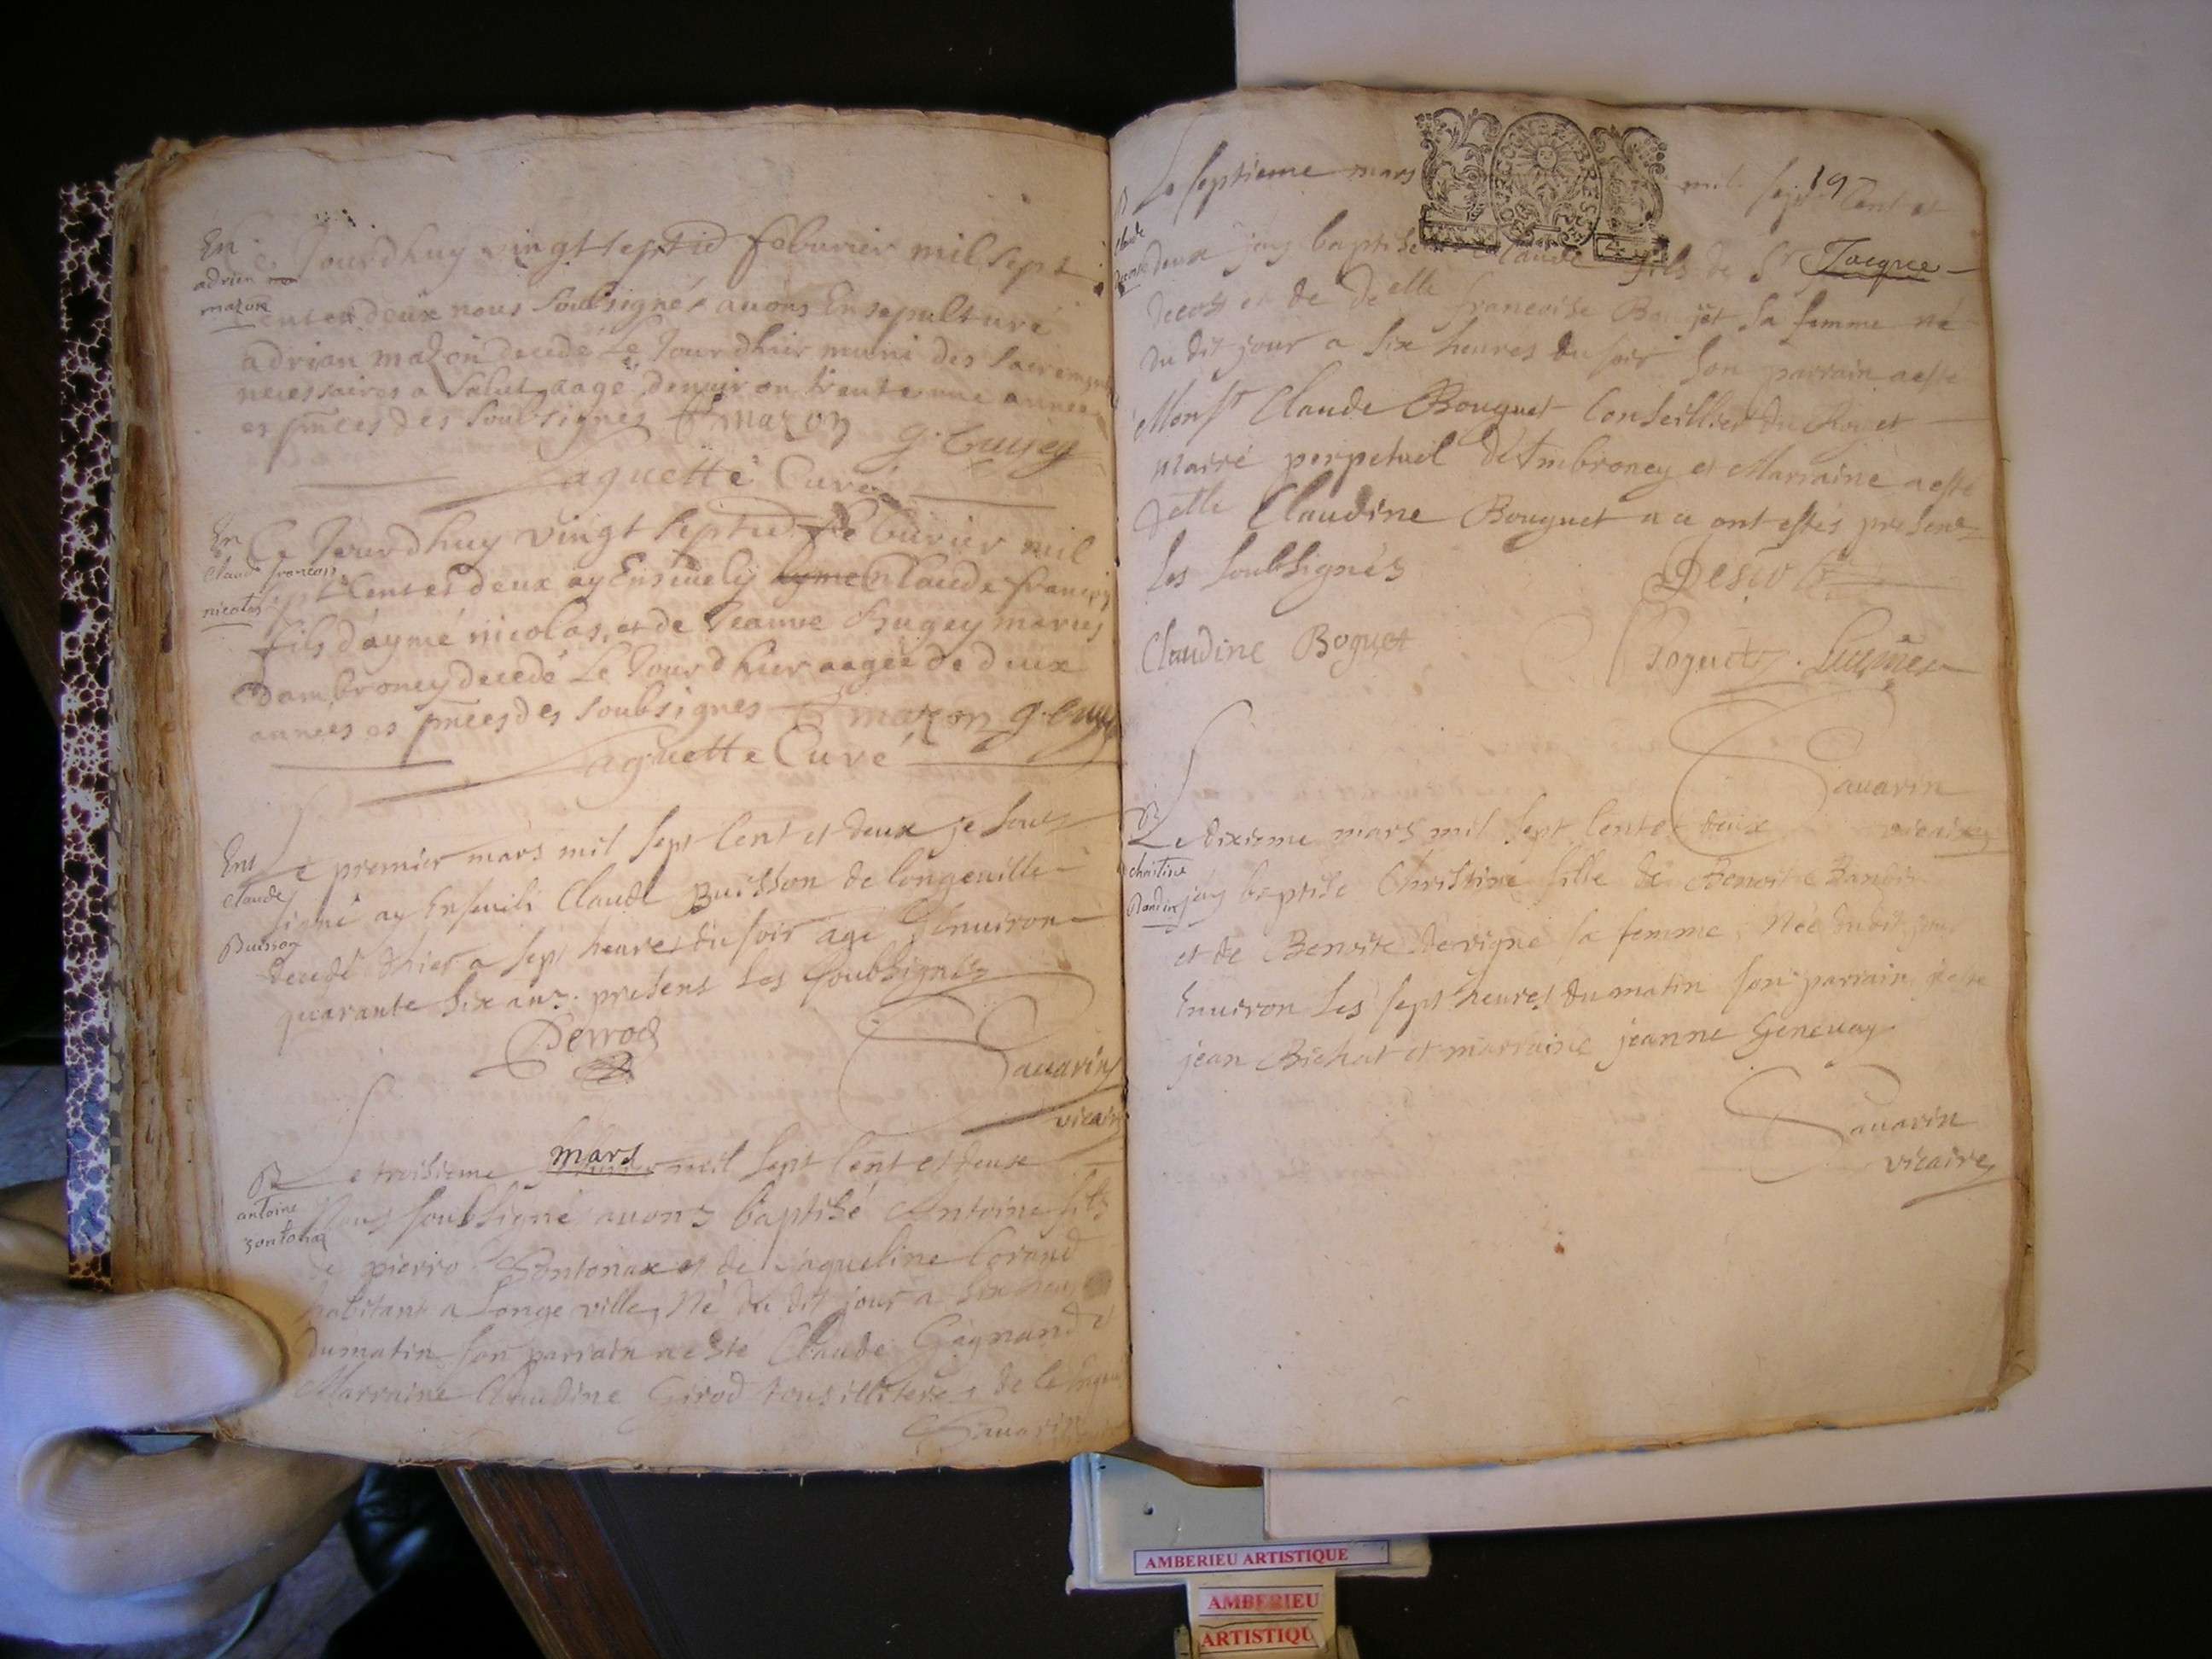 En
adrien
mazon
Ce Jourdhuy vingt septie feburier mil sept
cent et deux nous soubsignés auons Ensepulturé
adrian mazon decedé Le Jourdhier muni des sacremen
necessaires a salut aagé denuiron trente une année
es pnces des soubsignes mazon g. Cusey
Laguette Curé
En
Claude francois
nicolas
Ce Jourdhuy vingt septie feburier mil
sept Cent et deux ay Enseuely Claude francois
fils d'aymé nicolas, et de Jeanne hugey mariés
d'ambroney decedé Le Jourdhier aagée de deux
années es pnces des soubsignes mazon g. Cusey
Laguette Curé
Ent
Claude
Buisson
Le premier mars mil sept Cent et deux je sous
signé ay Enseueli Claude Buisson de longeuille
decedé hier a sept heures du soir agé d'enuiron
quarante six ans. presens les soubsignés
Perrod
Sauarin
vicaire
B
antoine
sontonax
Le troisieme mars mil sept Cent et deux
Nous soubsigné auons baptisé Antoine fils
de pierre Sontonax et de jaqueline Corand
habitant a Longeville, Né du dit jour a six heu
du matin son parrain a esté Claude Gagnand et
Marraine Claudine Girod tous illiteres de Longeu
Sauarin
B
Claude
Le septieme mars mil sept 19 Cent et
deux j'ay baptisé Claude fils de Sr Jacque
et de Delle francoise Bouguet sa femme né
du dit jour a six heures du soir son parrain a esté
Monsr Claude Bouguet Conseillier du Roy et
maire perpetuel d'Ambroney et Marraine a esté
Delle Claudine Bouguet a ce ont estés presens
les soubsignés
Claudine Boguet
Boguet
Sauarin
vicaire
B
christine
Le dixieme mars mil sept Cent et deux
j'ay baptisé Christine fille de Benoit
et de Benoite Dervigne sa femme Née du dit jour
Enuiron les sept heures du matin son parrain a esté
jean Bichat et marraine jeanne Geneuay
Sauarin
vicaire
AMBERIEU ARTISTIQUE
AMBERIEU
ARTISTIQU